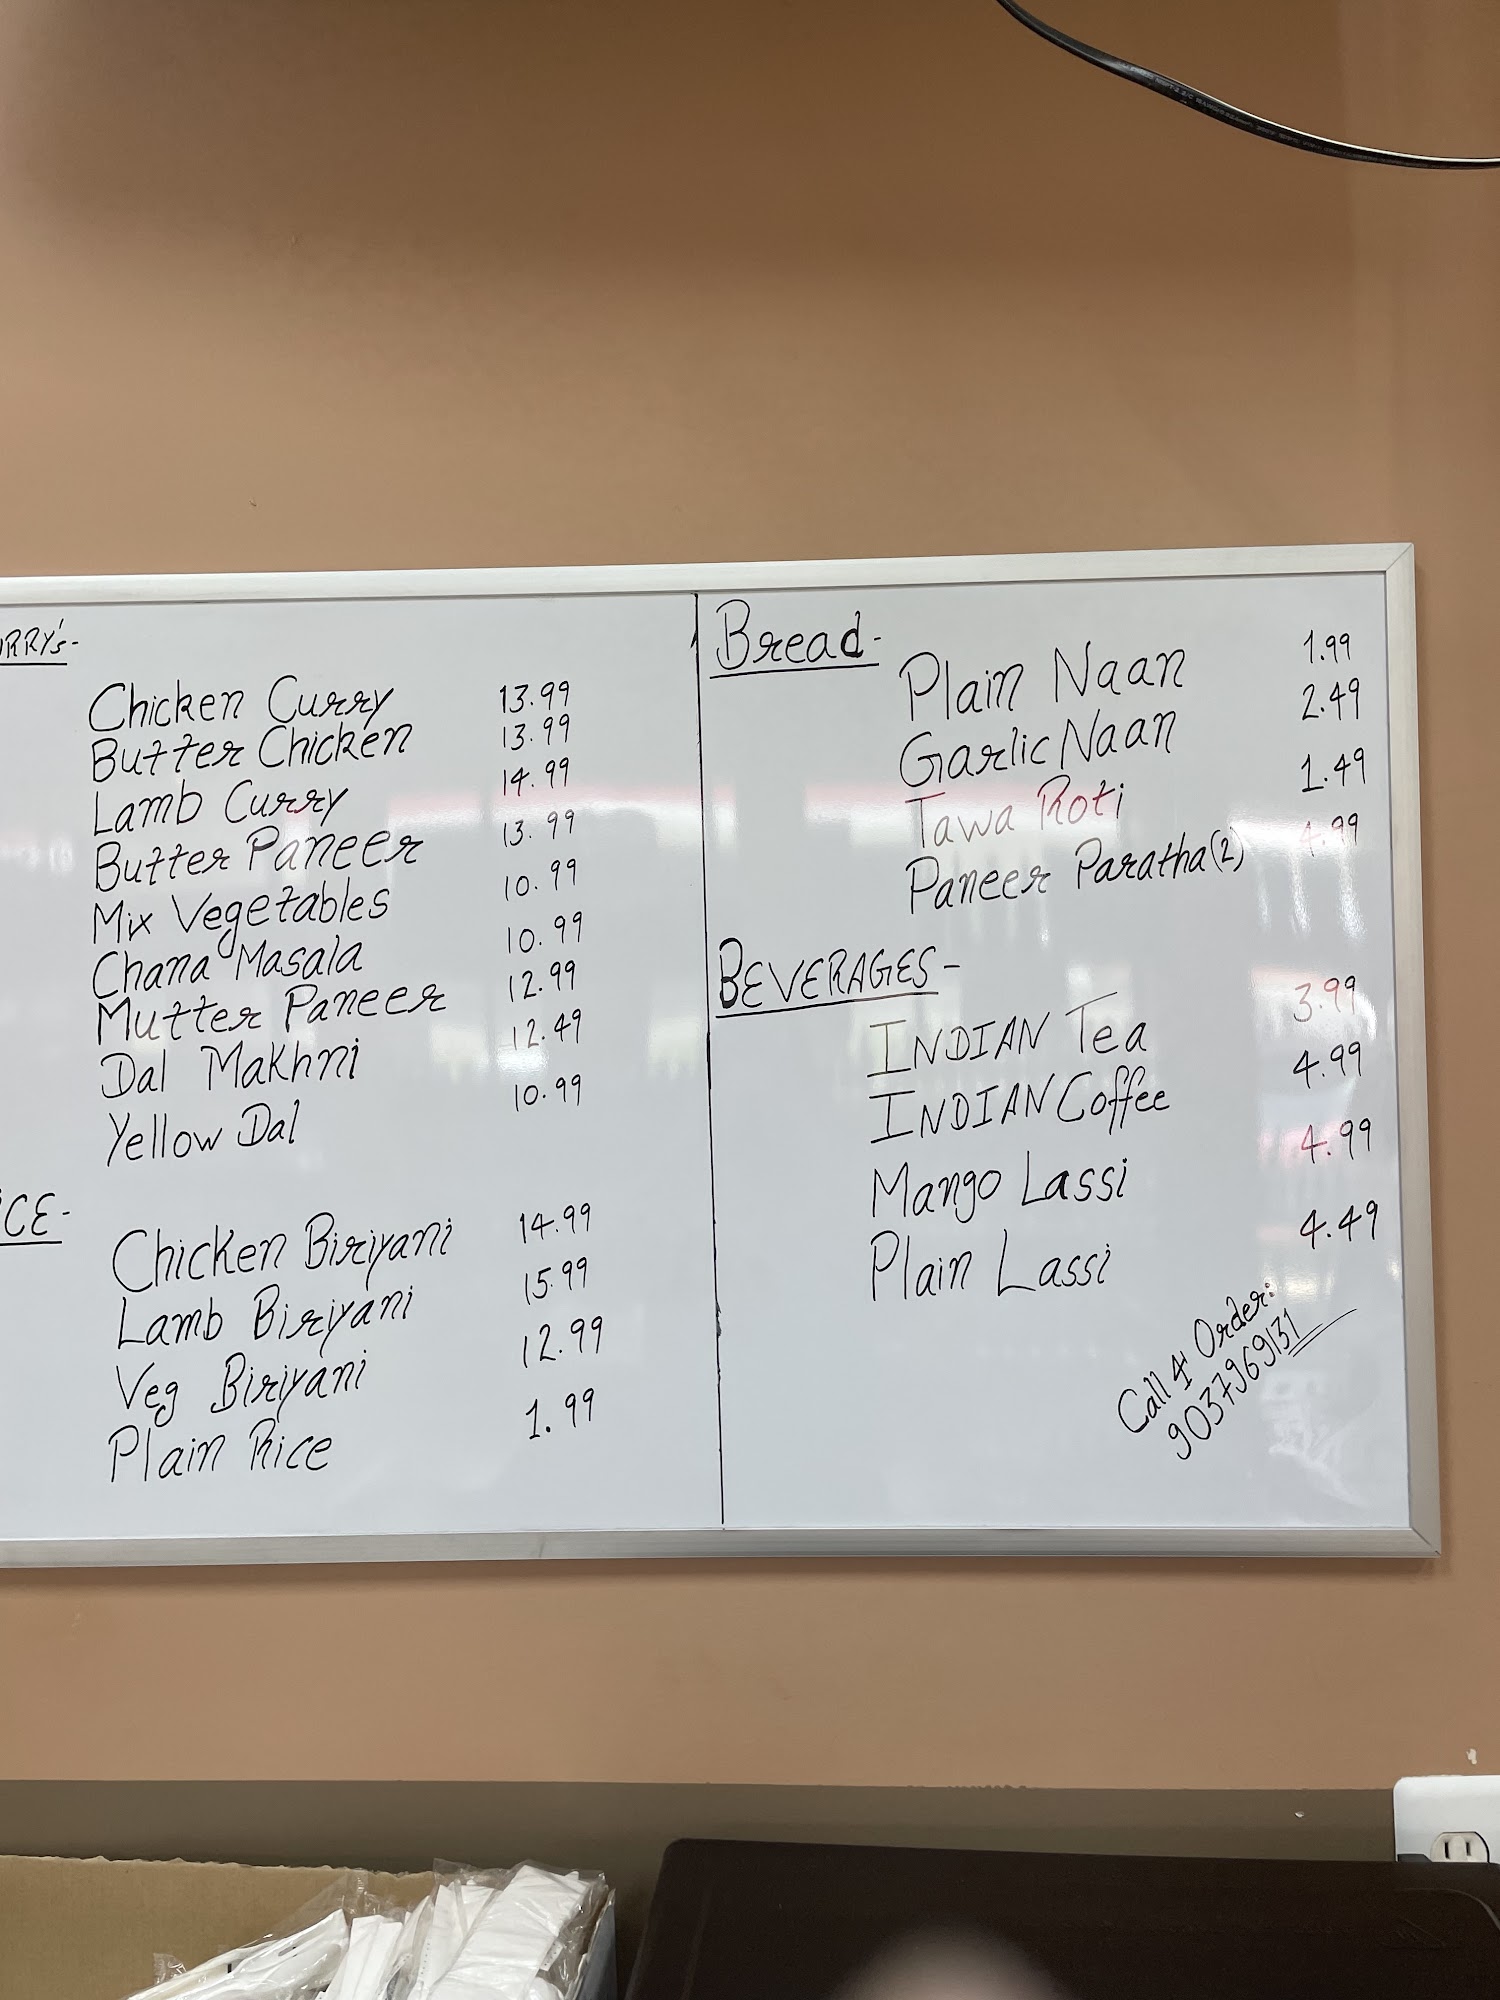 URRY's-
Chicken Curry 13.99
Butter Chicken 13.99
Lamb Curry 14.99
Butter Paneer 13.99
Mix Vegetables 10.99
Chana Masala 10.99
Mutter Paneer 12.99
Dal Makhni 12.49
Yellow Dal 10.99
ICE-
Chicken Biriyani 14.99
Lamb Biriyani 15.99
Veg Biriyani 12.99
Plain Rice 1.99
Bread-
Plain Naan 1.99
Garlic Naan 2.49
Tawa Roti 1.49
Paneer Paratha(2) 4.99
BEVERAGES-
INDIAN Tea 3.99
INDIAN Coffee 4.99
Mango Lassi 4.99
Plain Lassi 4.49
Call 4 Order:
9037969131